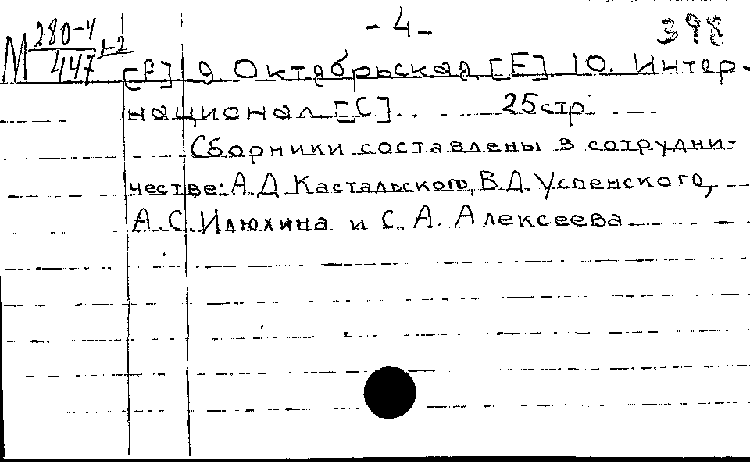 - 4 -
398
М 280-4/447 1-2
[F] 9. Октябрьская [E] 10. Интер-
национал [C]. 25 стр.
Сборники составлены в сотрудни-
честве: А.Д. Кастальского, В.Д. Успенского,
А.С. Илюхина и С.А. Алексеева.